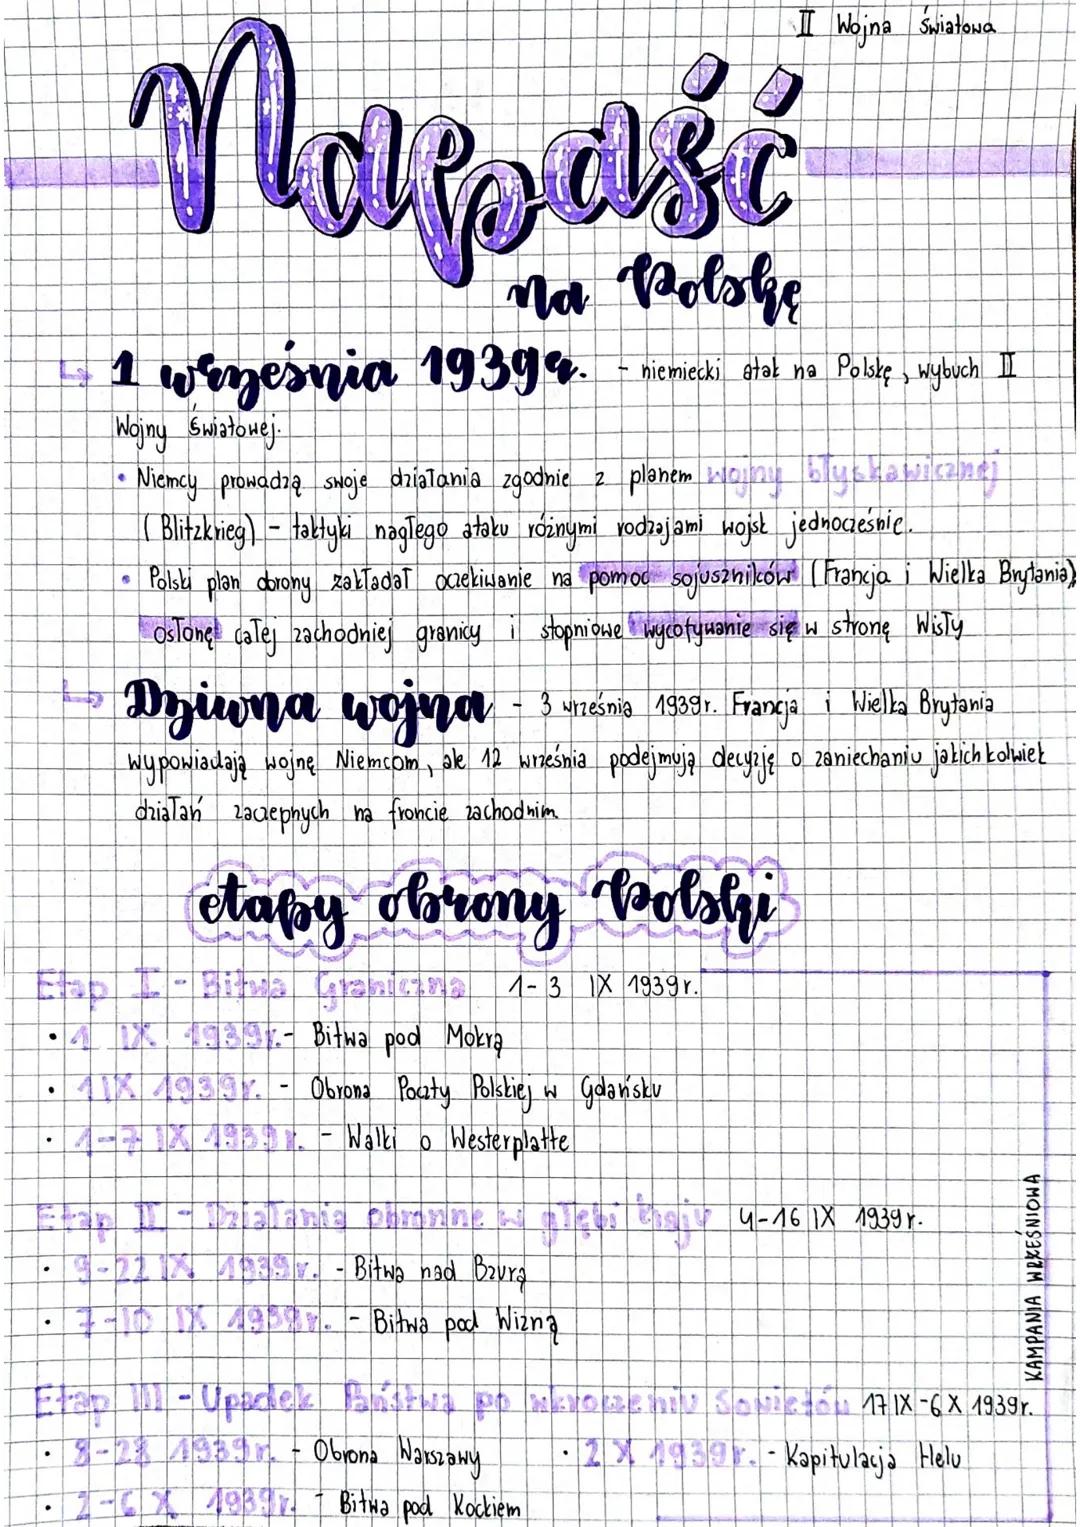 II Wojna Światowa
Napaść
na Polskę
↳ 1 września 1939r. - niemiecki atak na Polskę, wybuch II
Wojny Światowej.
• Niemcy prowadzą swoje działania zgodnie z planem wojny błyskawicznej
(Blitzkrieg) - taktyki nagłego ataku różnymi rodzajami wojsk jednocześnie.
• Polski plan obrony zakładał oczekiwanie na pomoc sojuszników (Francja i Wielka Brytania),
osłonę całej zachodniej granicy i stopniowe wycofywanie się w stronę Wisły
↳ Dziwna wojna - 3 września 1939r. Francja i Wielka Brytania
wypowiadają wojnę Niemcom, ale 12 września podejmują decyzję o zaniechaniu jakichkolwiek
działań zaczepnych na froncie zachodnim.
etapy obrony Polski
Etap I - Bitwa Graniczna 1-3 IX 1939r.
• 1 IX 1939r. - Bitwa pod Mokrą
• 1 IX 1939r. - Obrona Poczty Polskiej w Gdańsku
• 1-7 IX 1939r. - Walki o Westerplatte
Etap II - Działania obronne w głębi kraju 4-16 IX 1939r.
• 9-22 IX 1939r. - Bitwa nad Bzurą
• 7-10 IX 1939r. - Bitwa pod Wizną
Etap III - Upadek Państwa po wkroczeniu Sowietów 17 IX-6 X 1939r.
• 8-28 1939r. - Obrona Warszawy • 2 X 1939r. - Kapitulacja Helu
• 2-6 X 1939r. - Bitwa pod Kockiem
KAMPANIA WRZEŚNIOWA